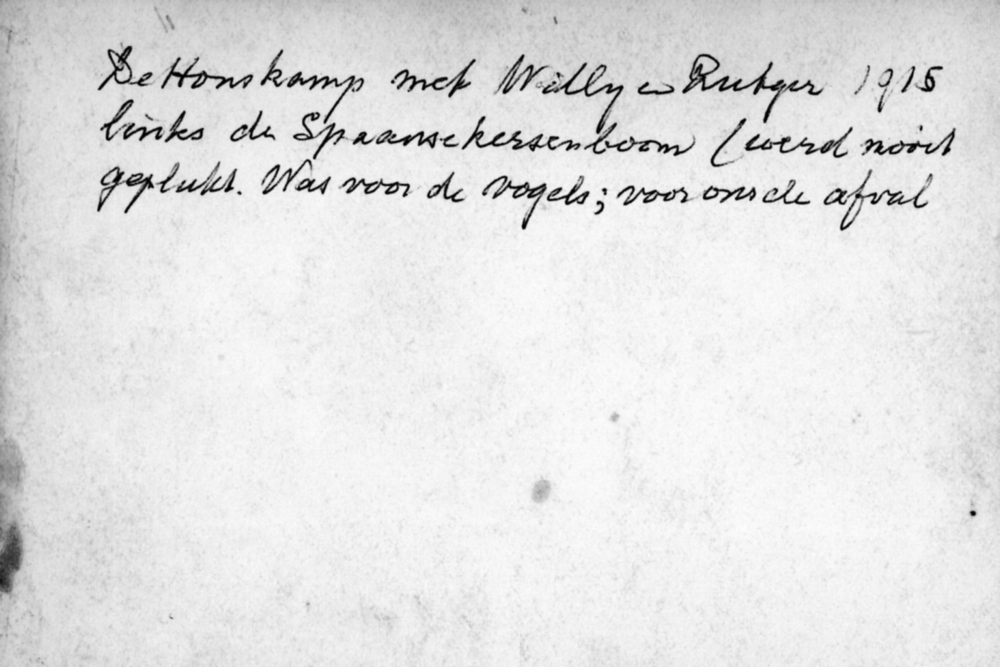 De Honskamp met Willy en Rutger 1915
links de Spaansekersenboom (werd nooit
geplukt. Was voor de vogels; voor ons de afval